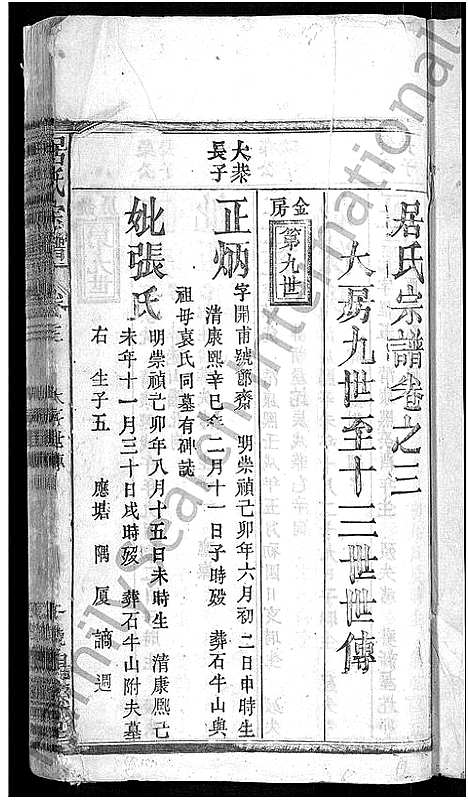 居氏宗譜卷之三
大房九世至十三世世傳
金房
第九世
大桊
長子
正炳
字開甫號節齋 明崇禎己卯年六月初二日申時生
清康熙辛巳年二月十一日子時歿 葬石牛山與
祖母袁氏同墓有碑誌
妣張氏
明崇禎己卯年八月十五日未時生 清康熙己
未年十一月三十日戌時歿 葬石牛山附夫墓
右 生子五 應塘 隅 厦 謫 週
居氏宗譜 卷三
FamilySearch International